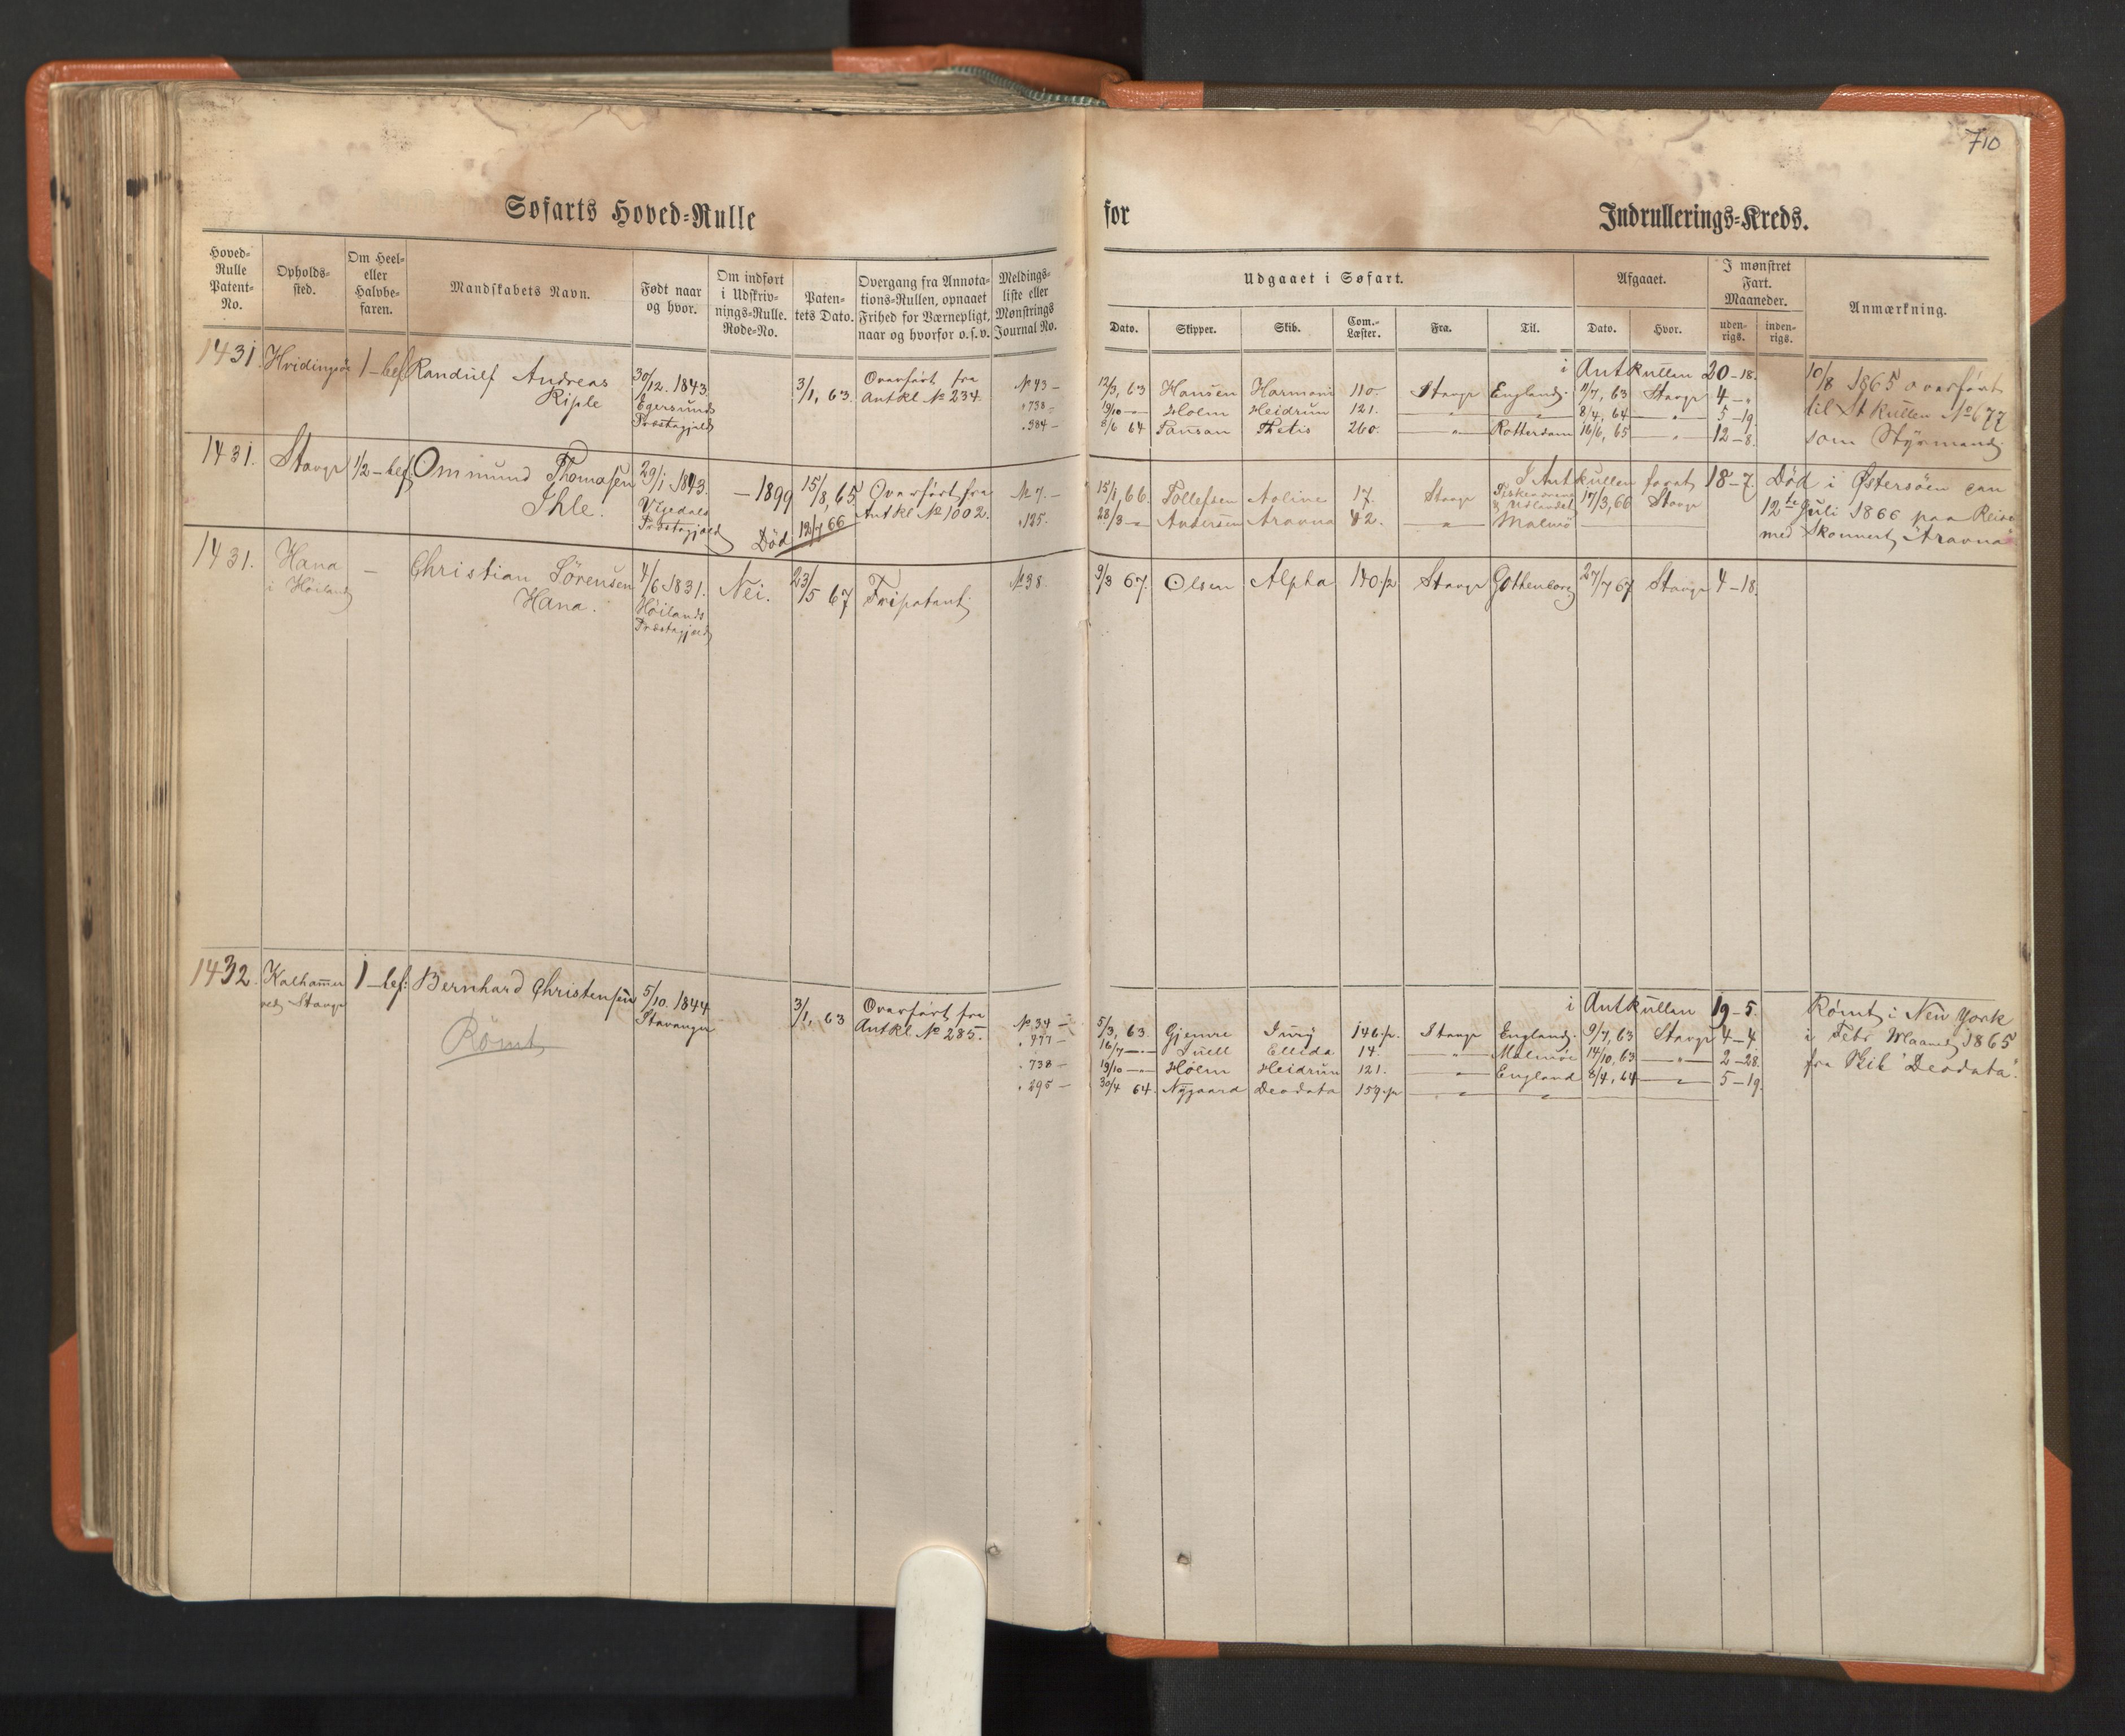 710
Søfarts Hoved-Rulle for Indrullerings-Kreds.
Hoved-Rulle Patent-No.
Opholds-sted.
Om Heel- eller Halvbe-faren.
Mandskabets Navn.
Født naar og hvor.
Om indført i Udskriv-nings-Rulle. Rode-No.
Paten-tets Dato.
Overgang fra Annota-tions-Rullen, opnaaet Frihed for Værnepligt, naar og hvorfor o.s.v.
Meldings-liste eller Mønstrings Journal No.
Udgaaet i Søfart.
Afgaaet.
I mønstret Fart. Maaneder.
Anmærkning.
Dato. Skipper. Skib. Com.-Læster. Fra. Til. Dato. Hvor. uden-rigs. inden-rigs.
1431. Hvidingsø 1-bef Randulf Andreas Riple
30/12. 1843. Egersunds Præstegjeld
3/1, 63.
Overført fra Antkl No 234.
i Antkullen 20-18.
No 43 - 12/3, 63 Hansen Harmoni 110. Stavgr England. 11/7, 63 Stavgr 4-"
" 738 - 19/10 - Holm Heidrun 121. " " 8/4, 64 " 5-19.
" 384 - 8/6 64 Thetis 260. " Rotterdam 16/6, 65 " 12-8.
10/8 1865 overført
til St Kullen No 677
som Styrmand.
1431. Stavgr 1/2-bef Ommund Thomasen Ihle.
29/1 1843. Præstegjeld
- 1899
15/8, 65
Overført fra Antkl No 1002.
Død 12/7 66
I Antkullen forat 18-7.
No 7. - 15/1, 66. Tollefsen Aoline 17. Stavgr 17/3, 66 Stavgr
" 125. 28/3 - Andersen Aravna 42. " Malmø
Død i Østersøen den
12te Juli 1866 paa Reise
med Skonnert Aravna
1431. Hana i Høiland - Christian Sørensen Hana.
4/6 1831. Høilands Præstegjeld
Nei.
23/5 67
Fripatent
No 38. 9/3 67. Olsen Alpha 140.p Stavgr Gøttenborg 27/7 67 Stavgr 4-18.
1432. Kalhammer ved Stavgr 1-bef: Bernhard Christensen
Rømt
5/10. 1844 Stavanger
3/1, 63
Overført fra Antkl No 285.
i Antkullen 19-5.
No 34 - 5/3, 63 Gjemre 146.p. Stavgr England. 9/7, 63 Stavgr 4-4
" 477 - 16/7 - Juell Ellida 14. " Malmøe 14/10, 63 " 2-28.
" 738 - 19/10 - Holm Heidrun 121. " England 8/4, 64 " 5-19.
" 295 - 30/4 64. Nygaard Deodata 159.p " "
Rømt i New York
i Febr Maaned 1865
fra Skib "Deodata".